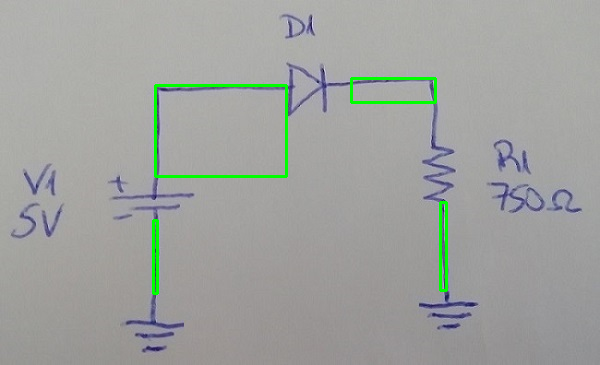 D1
V1
5V
+
-
R1
750Ω